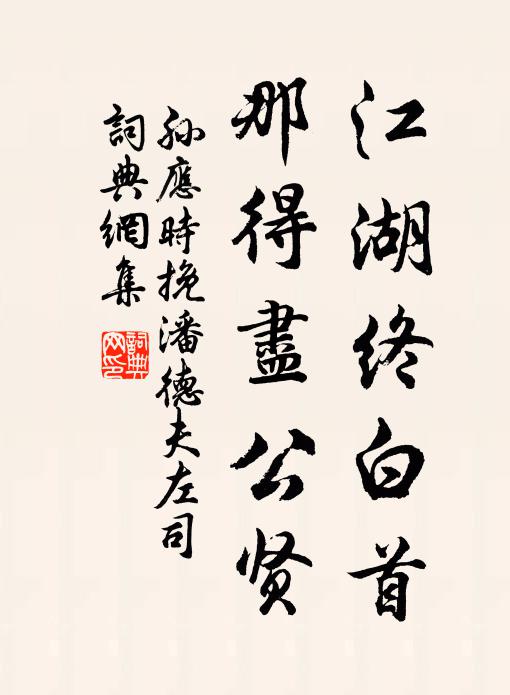 江湖终白首
那得盡公贤
孙應時挽潘德夫左司
詞典網集
詞典网印